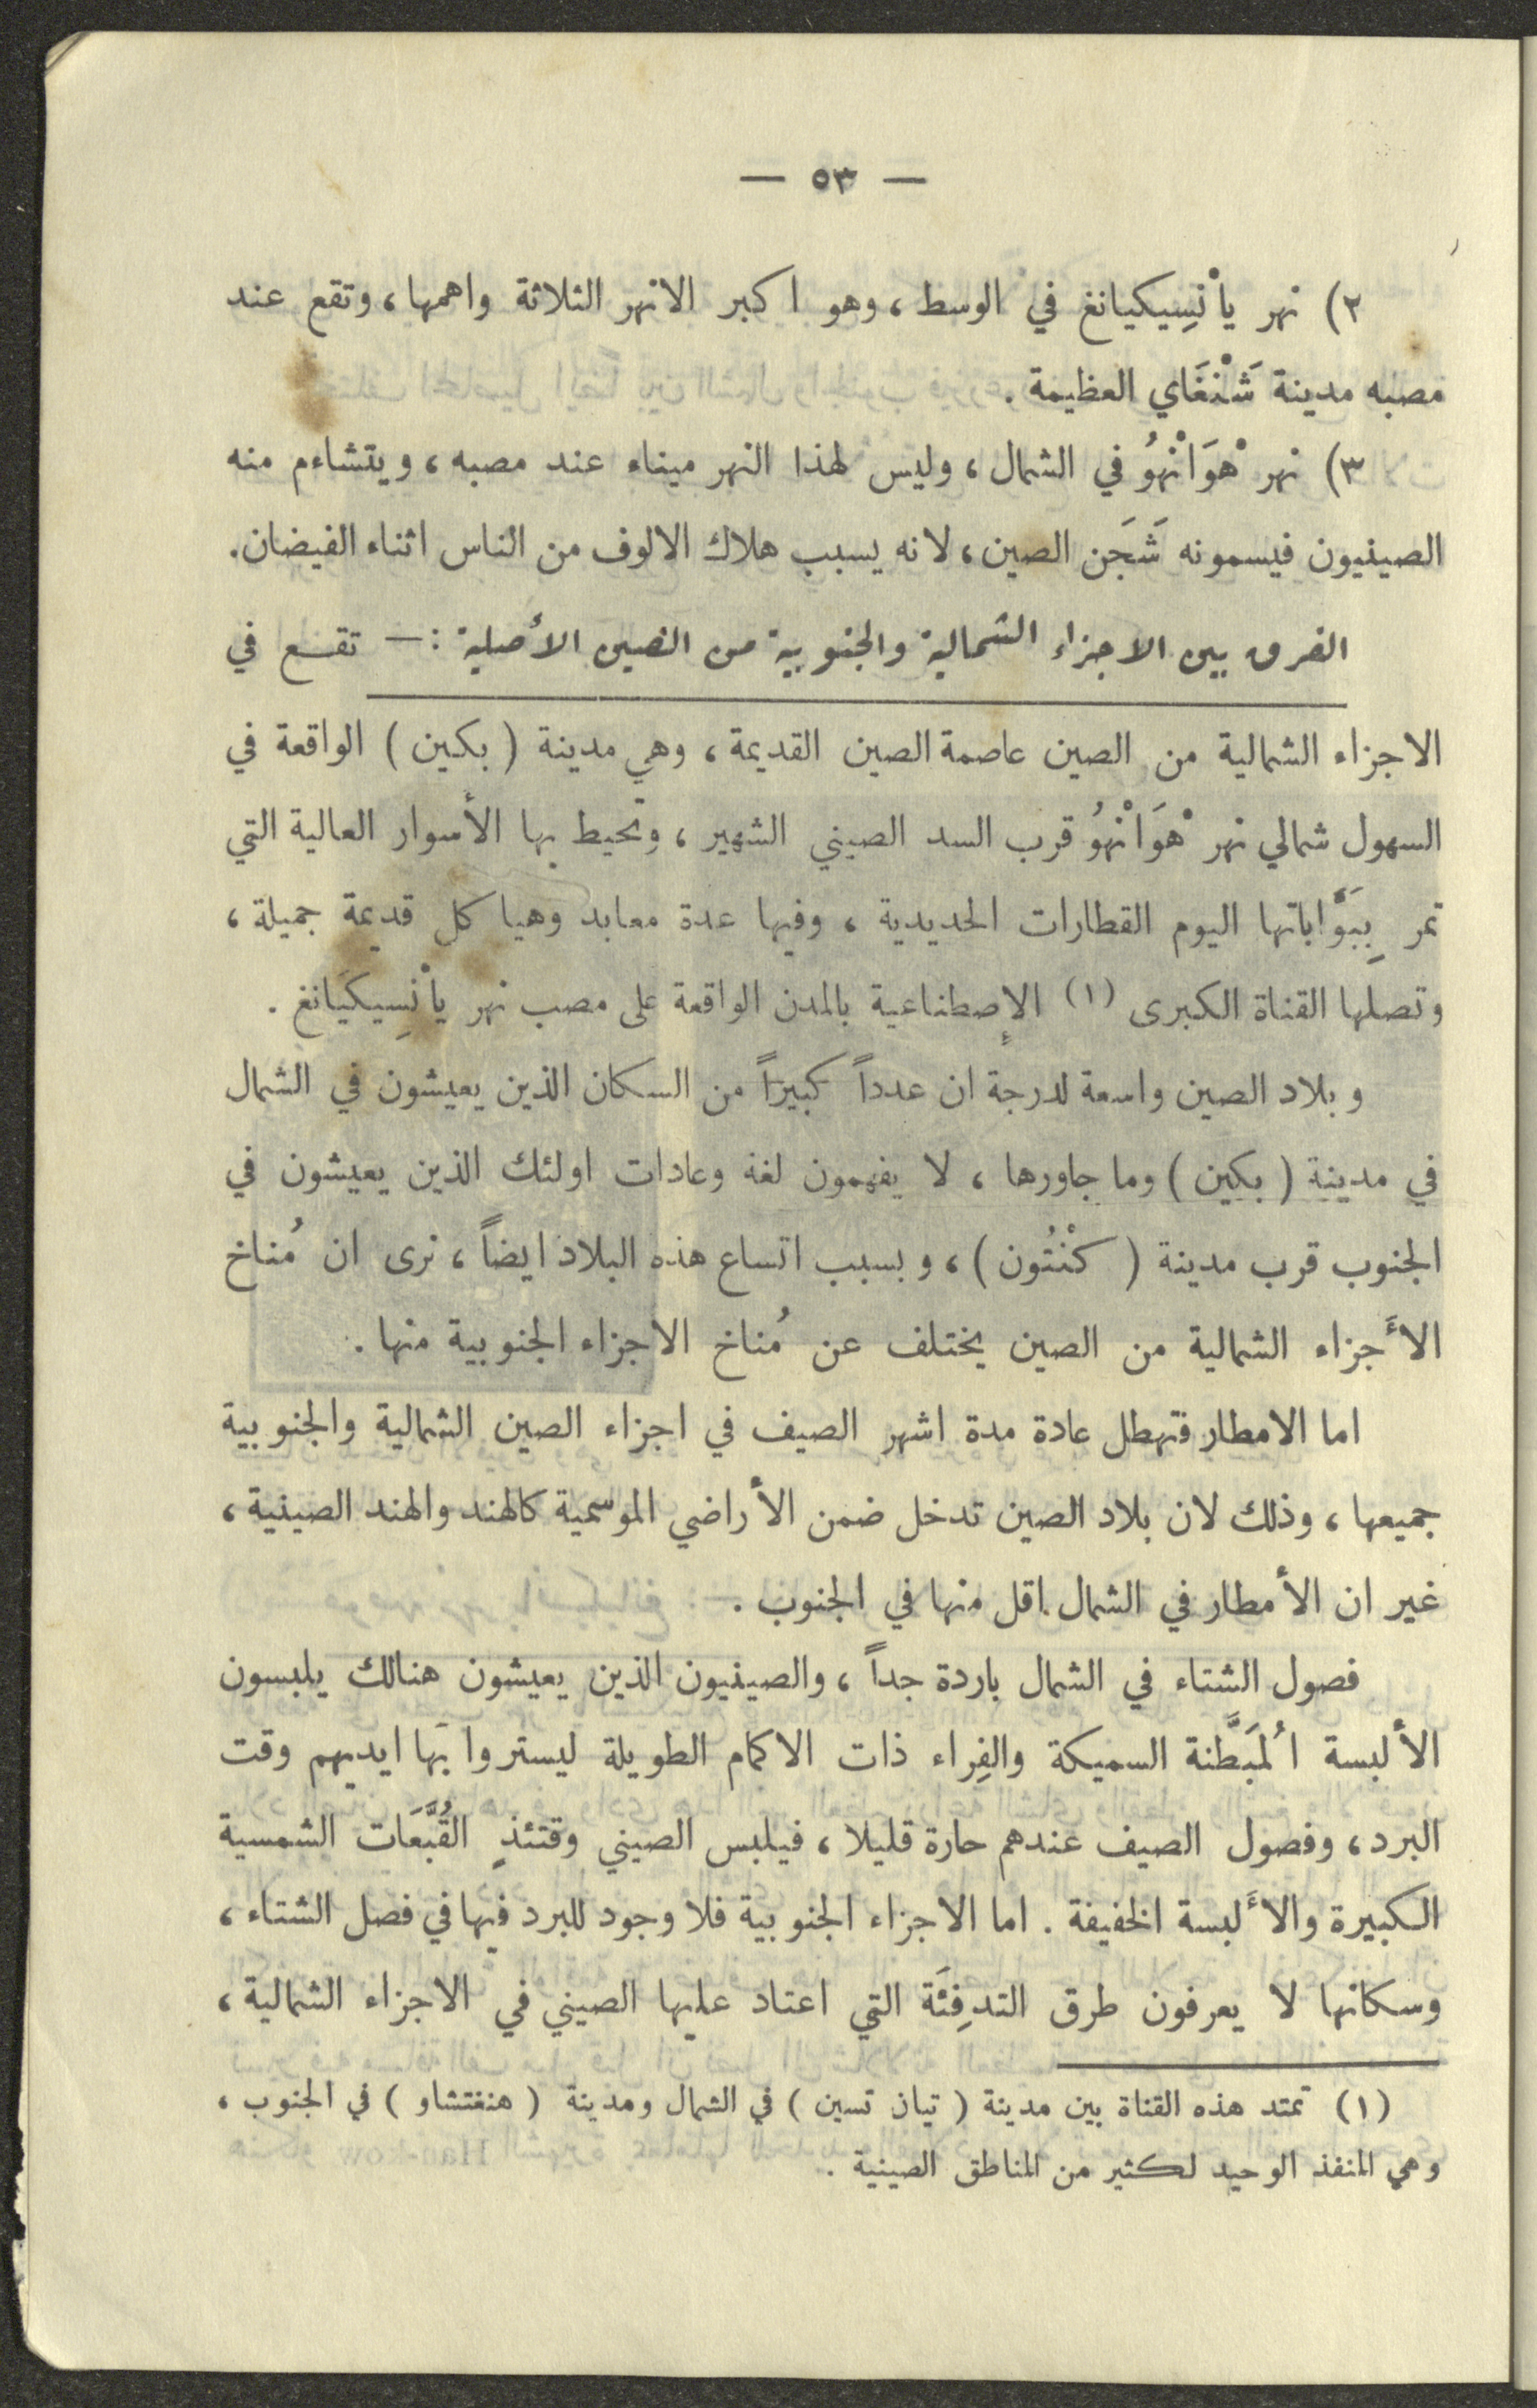 — ٥٣ —
٢) نهر يأْنسِيكيانغ في الوسط ، وهو اكبر الانهر الثلاثة واهمها ، وتقع عند
مصبه مدينة شَنْغَاي العظيمة .
٣) نهر هْوَانْهوُ في الشمال ، وليس لهذا النهر ميناء عند مصبه ، ويتشاءم منه
الصينيون فيسمونه شَجَن الصين ، لانه يسبب هلاك الالوف من الناس اثناء الفيضان .
الفرق بين الاجزاء الشمالية والجنوبية من الصين الأصلية : — تقع في
الاجزاء الشمالية من الصين عاصمة الصين القديمة ، وهي مدينة ( بكين ) الواقعة في
السهول شمالي نهر هْوَانْهوُ قرب السد الصيني الشهير ، وتحيط بها الأسوار العالية التي
تمر بِبَوَّاباتها اليوم القطارات الحديدية ، وفيها عدة معابد وهياكل قديمة جميلة ،
وتصلها القناة الكبرى (١) الإصطناعية بالمدن الواقعة على مصب نهر يأْنسِيكيَانغ .
وبلاد الصين واسعة لدرجة ان عدداً كبيراً من السكان الذين يعيشون في الشمال
في مدينة ( بكين ) وما جاورها ، لا يفهمون لغة وعادات اولئك الذين يعيشون في
الجنوب قرب مدينة ( كنْتُون ) ، وبسبب اتساع هذه البلاد ايضاً ، نرى ان مُناخ
الأَجزاء الشمالية من الصين يختلف عن مُناخ الاجزاء الجنوبية منها .
اما الامطار فتهطل عادة مدة اشهر الصيف في اجزاء الصين الشمالية والجنوبية
جميعها ، وذلك لان بلاد الصين تدخل ضمن الأراضي الموسمية كالهند والهند الصينية ،
غير ان الأمطار في الشمال اقل منها في الجنوب .
فصول الشتاء في الشمال باردة جداً ، والصينيون الذين يعيشون هنالك يلبسون
الألبسة اُلمبَطَّنة السميكة والفِراء ذات الاكمام الطويلة ليستروا بَها ايديهم وقت
البرد ، وفصول الصيف عندهم حارة قليلا ، فيلبس الصيني وقتئذٍ القُبَّعَات الشمسية
الكبيرة والأَلبسة الخفيفة . اما الاجزاء الجنوبية فلا وجود للبرد فيها في فصل الشتاء ،
وسكانها لا يعرفون طرق التدفِئَة التي اعتاد عليها الصيني في الاجزاء الشمالية ،
(١) تمتد هذه القناة بين مدينة ( تيان تسين ) في الشمال ومدينة ( هنغتشاو ) في الجنوب ،
وهي المنفذ الوحيد لكثير من المناطق الصينية .